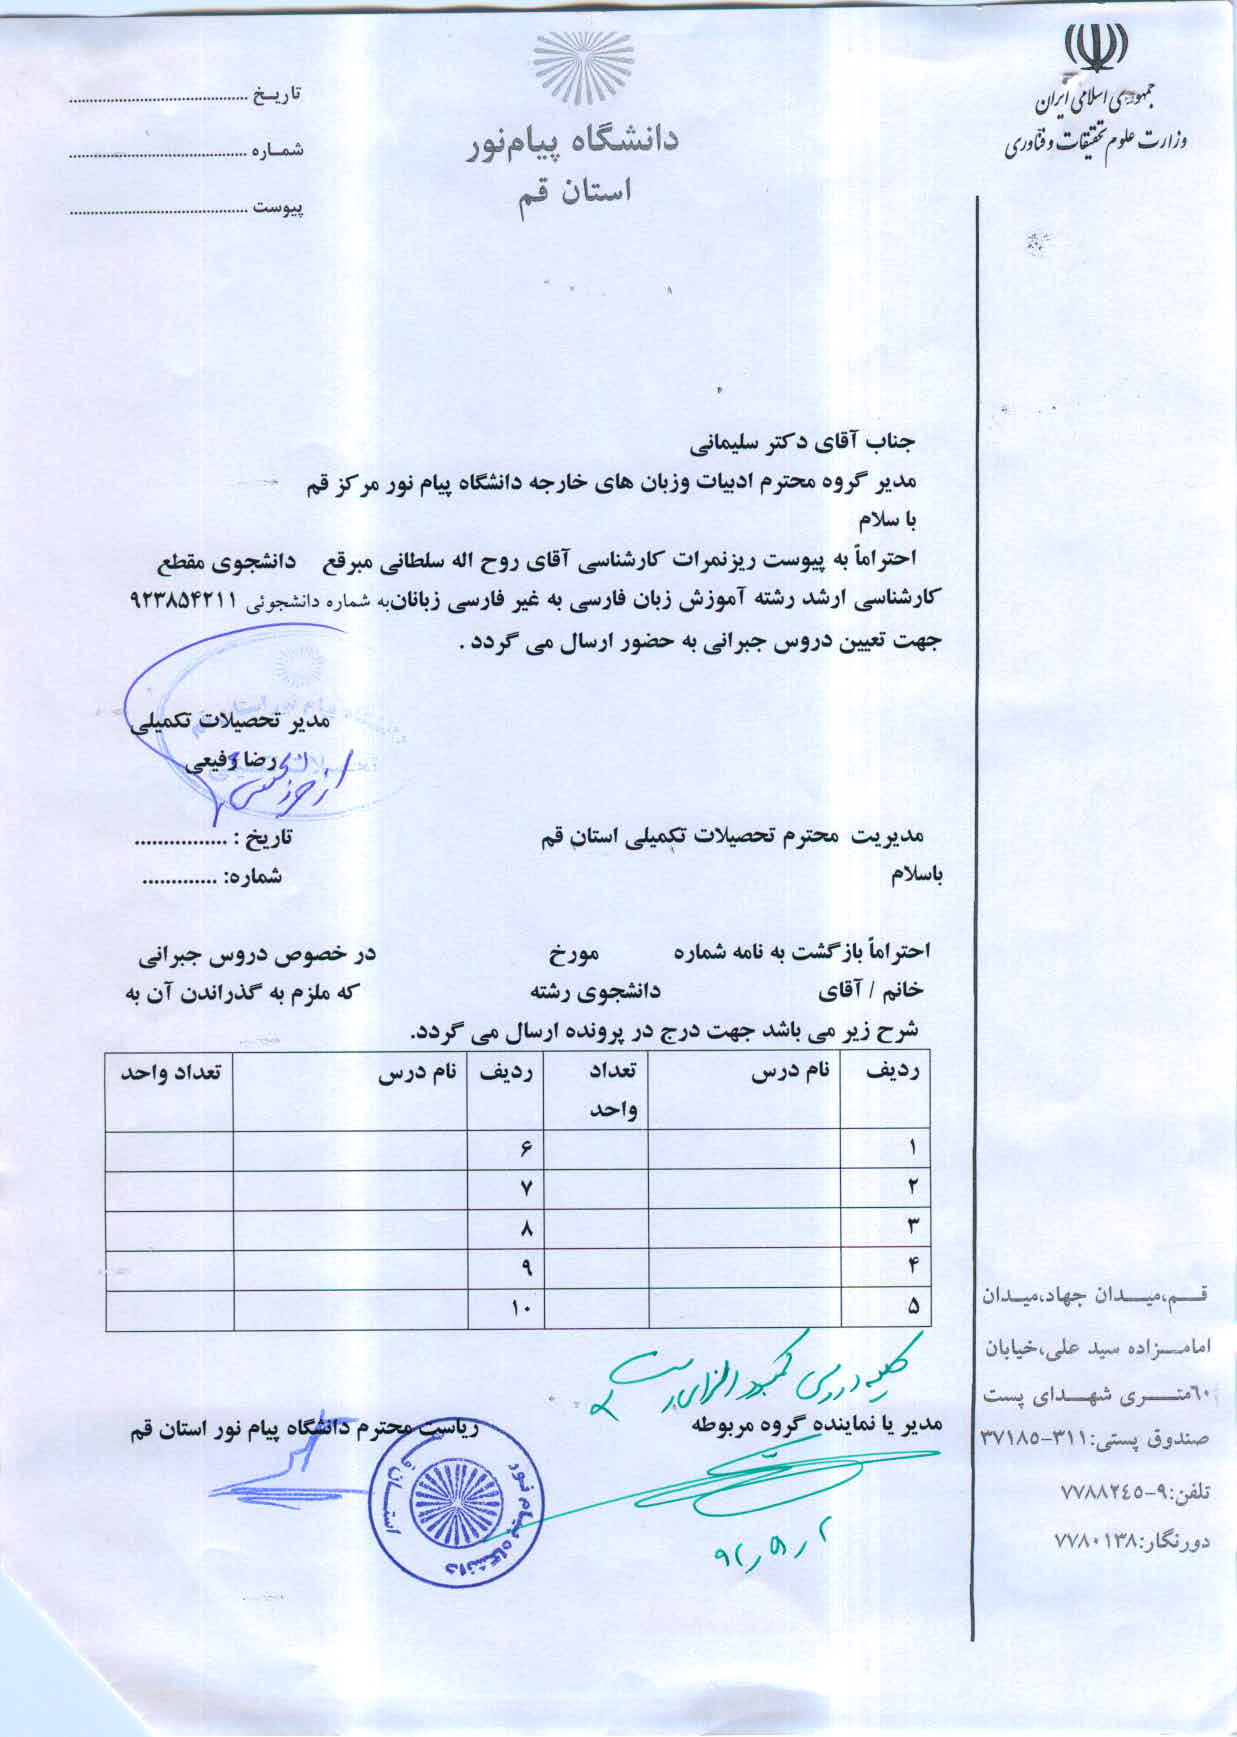 جمهوری اسلامی ایران
وزارت علوم تحقیقات و فناوری
دانشگاه پیام‌نور
استان قم
تاریـخ ............................................
شمـاره ............................................
پیوست ............................................
جناب آقای دکتر سلیمانی
مدیر گروه محترم ادبیات وزبان های خارجه دانشگاه پیام نور مرکز قم
با سلام
احتراماً به پیوست ریزنمرات کارشناسی آقای روح اله سلطانی مبرقع دانشجوی مقطع
کارشناسی ارشد رشته آموزش زبان فارسی به غیر فارسی زبانان‌به شماره دانشجوئی ۹۲۳۸۵۴۲۱۱
جهت تعیین دروس جبرانی به حضور ارسال می گردد .
مدیر تحصیلات تکمیلی
رضا رفیعی
مدیریت محترم تحصیلات تکمیلی استان قم تاریخ : ................
باسلام شماره: .............
احتراماً بازگشت به نامه شماره مورخ در خصوص دروس جبرانی
خانم / آقای دانشجوی رشته که ملزم به گذراندن آن به
شرح زیر می باشد جهت درج در پرونده ارسال می گردد.
ردیف نام درس تعداد واحد ردیف نام درس تعداد واحد
۱ ۶
۲ ۷
۳ ۸
۴ ۹
۵ ۱۰
کلیه دروس
مدیر یا نماینده گروه مربوطه ریاست محترم دانشگاه پیام نور استان قم
دانشگاه پیام نور
استـان قم
قــم،میـــدان جهاد،میـدان
امامــزاده سید علی،خیابان
٦٠متــــری شهــدای پست
صندوق پستی:۳۱۱-۳۷۱۸۵
تلفن:۹-۷۷۸۸۲٤۵
دورنگار:۷۷۸۰۱۳۸